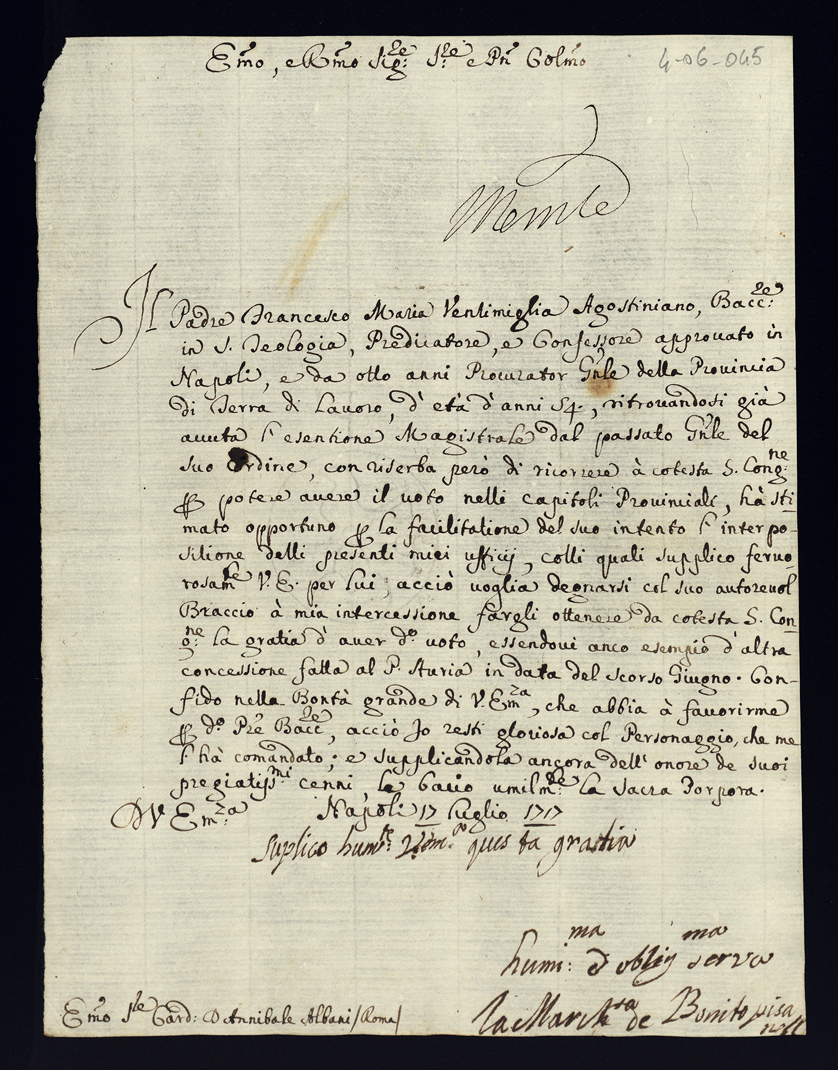 4-06-045
Emo, e Rmo Sig:re S:re e Pñ Colmo
Il Padre Francesco Maria Ventimiglia Agostiniano, Bacc:re
in S. Teologia, Predicatore, e Confessore approvato in
Napoli, e da otto anni Procurator Gñle della Provincia
di Terra di Lavoro, d'età d'anni 54., ritrovandosi già
avuta l'esentione Magistrale dal passato Gñle del
suo Ordine, con riserba però di ricorrere à cotesta S. Cong:ne
ꝑ potere avere il voto nelli capitoli Provinciali, hà sti-
mato opportuno ꝑ la facilitatione del suo intento l'interpo-
sitione delli presenti miei ufficij, colli quali supplico fervo-
rosamte V.E. per lui, acciò voglia degnarsi col suo autorevol
Braccio à mia intercessione fargli ottenere da cotesta S. Con-
g:ne la gratia d'aver do voto, essendovi anco esempio d'altra
concessione fatta al P. Auria in data del scorso Giugno. Con-
fido nella Bontà grande di V.Emza, che abbia à favorirme
ꝑ do Pre Baccre, acciò Io resti gloriosa col Personaggio, che me
l'hà comandato; e supplicandola ancora dell'onore de suoi
pregiatissmi cenni, le bacio umilm:te la Sacra Porpora.
D V Em:za Napoli 17 luglio 1717
Suplico humte: questa gratia
humi:ma et oblig ma serva
la Marchsa de Bonito pisa
nell
Emo Sre Card: D Annibale Albani /Roma/